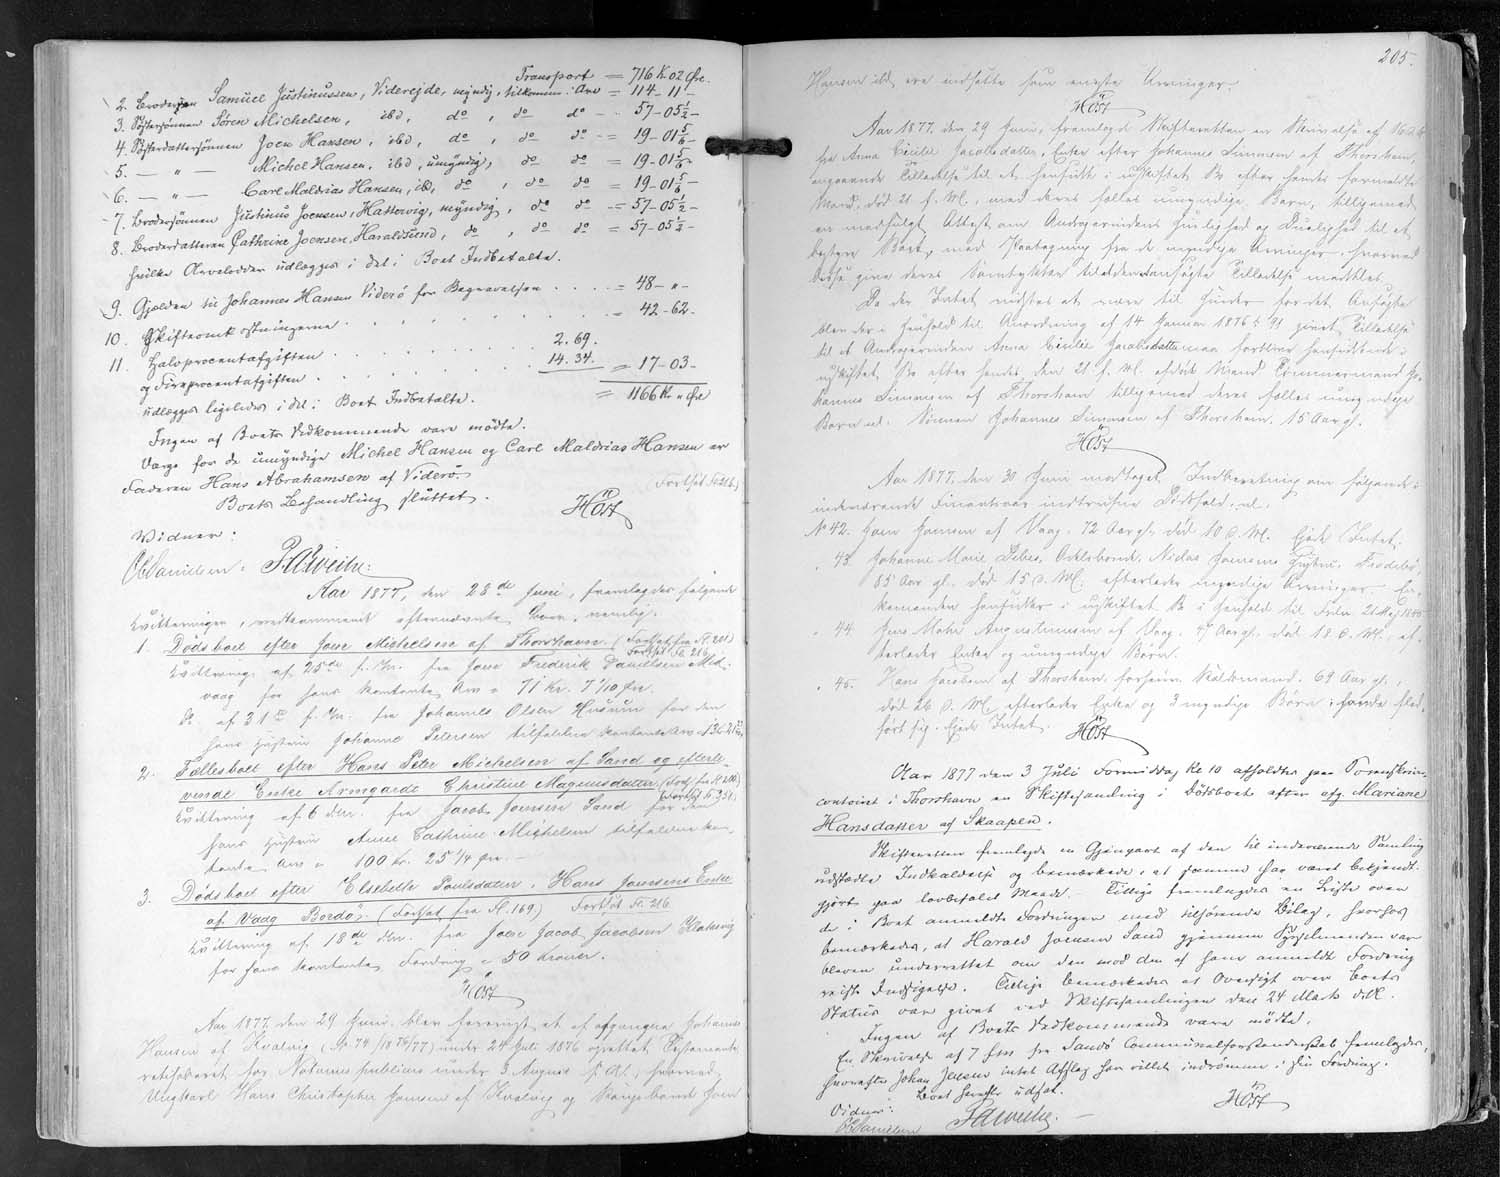 Transport = 716 Kr. 02 Øre.
2. Brodersøn Samuel Justinussen, Viderejde, myndig, tilkommen i Arv = 114-11-
3. Søstersønnen Søren Michelsen, ibd, do, do do - 57-05½-
4. Søsterdattersønnen Joen Hansen, ibd, do, do do = 19-01⅚-
5. — " — Michel Hansen, ibd, umyndig, do do = 19-01⅚-
6. — " — Carl Maldrias Hansen, ibd, do, do do = 19-01⅚-
7. Brodersønnen Justinus Joensen, Hattervig, myndig, do do = 57-05½-
8. Broderdatteren Cathrine Joensen, Haraldsund, do, do do = 57-05½-
hvilke Arvelodder udlægges i det i Boet Indbetalte.
9. Gjælden til Johannes Hansen Viderø for Begravelsen . . . . = 48-"-
10. Skifteomkostningerne . . . . . . . . = 42-62-
11. Halvprocentafgiften . . . . . . . 2.69.
og Fireprocentafgiften . . . . . . . 14.34. = 17-03-
udlægges ligeledes i det i Boet Indbetalte. = 1166 Kr. " Øre
Ingen af Boets Vedkommende vare mødte.
Værge for de umyndige Michel Hansen og Carl Maldrias Hansen er
Faderen Hans Abrahamsen af Viderø.
Boets Behandling sluttet. (Fortsat Fl. 216.)
Høst
Vidner:
O Danielsen.
Aar 1877, den 28de Juni, fremlagdes følgende
Kvitteringer, vedkommende efternævnte Boer, nemlig:
1. Dødsboet efter Joen Michelsen af Thorshavn (Fortsat fra Fl. 201)
Fortsat Fl. 216.
Kvittering af 25de f. M. fra Joen Frederik Danielsen Mid-
vaag for hans kontante Arv = 71 Kr. 7 1/10 Øre.
do. af 31te f. M. fra Johannes Olsen Husum for den
hans Hustru Johanne Petersen tilfaldne kontante Arv
2. Fællesboet efter Hans Peter Michelsen af Sand og efterle-
vende Enke Armgarde Christine Magnusdatter (Forts. fra Fl. 200)
Kvittering af 6 dM. fra Jacob Joensen Sand for den
hans Hustru Anne Cathrine Michelsen tilfaldne kon-
tante Arv = 100 Kr. 25 1/4 Øre. —
3. Dødsboet efter Elsebeth Poulsdatter, Hans Joensens Enke
af Vaag Bordø. (Fortsat fra Fl. 169.) Fortsat Fl. 216.
Kvittering af 18de dM. fra Joen Jacob Jacobsen Klaksvig
for hans kontante Fordring = 50 Kroner.
Høst
Aar 1877, den 29 Juni, blev forevist et af afgangne Johannes
Hansen af Kvalvig (Nr. 74/1876/77) under 24 Juli 1876 oprettet Testamente
notificeret for Notarius publicus under 3 August s. A., hvorved
Ungkarl Hans Christopher Jensen af Kvalvig og
205.
Hansen ibd. ere indsatte som eneste Arvinger.
Høst
Aar 1877, den 29 Juni, fremlagde Skifteretten en Skrivelse af 16 d. M.
fra Anna Cecilie Jacobsdatter, Enke efter Johannes Simonsen af Thorshavn,
angaaende Tilladelse til at hensidde i uskiftet Bo efter hendes formeldte
Mand, død 21 f. M., med deres fælles umyndige Børn, tilligemed
en medfulgt Attest om Andragerindens Huuslighed og Duelighed til at
bestyre Boet, med Paategning fra de myndige Arvinger, hvorved
disse give deres Samtykke til at den ansøgte Tilladelse meddeles.
Da der Intet vidstes at være til Hinder for det Ansøgte
blev der i Henhold til Anordning af 14 Januar 1876 § 91 givet Tilladelse
til at Andragerinden Anna Cecilie Jacobsdatter maa forblive hensiddende i
uskiftet Bo efter hendes den 21 f. M. afdøde Mand Tømmermand Jo-
hannes Simonsen af Thorshavn tilligemed deres fælles umyndige
Barn nl. Sønnen Johannes Simonsen af Thorshavn, 15 Aar gl.
Høst
Aar 1877, den 30 Juni modtoges Indberetning om følgende i
indeværende Finantsaar indtrufne Dødsfald, nl.
Nr 42. Joen Joensen af Vaag, 72 Aar gl. død 10 d. M. Ejede Intet.
" 43. Johanne Marie, Nielas Joensens Hustru, Frodebø,
85 Aar gl., død 15 d. M. efterlader myndige Arvinger. En-
kemanden hensidder i uskiftet Bo i Henhold til Frdn. 21 Maj 1845
" 44. Jens Mohr Augustinussen af Vaag, 47 Aar gl. død 18 d. M., ef-
terlader Enke og umyndige Børn.
" 45. Hans Jacobsen af Thorshavn, 69 Aar gl.,
død 26 d. M. efterlader Enke og 3 myndige Børn
ført sig. Ejede Intet.
Høst
Aar 1877 den 3 Juli Formiddag Kl 10 afholdtes paa Sorenskriver-
contoiret i Thorshavn en Skiftesamling i Dødsboet efter afg. Mariane
Hansdatter af Skaapen.
Skifteretten fremlagde en Gjenpart af den til indeværende Samling
udstædte Indkaldelse og bemærkede, at samme har været bekjendt-
gjort paa lovbefalet Maade. Tillige fremlagdes en Liste over
de i Boet anmeldte Fordringer med tilhørende Bilag, hvorhos
bemærkedes, at Harald Joensen Sand gjennem Sysselmanden var
bleven underrettet om den mod den af ham anmeldte Fordring
rejste Indsigelse. Tillige bemærkedes at Oversigt over Boets
Status var givet ved Skiftesamlingen den 24 Marts d.A.
Ingen af Boets Vedkommende vare mødte.
En Skrivelse af 7 f.M. fra Sands Communalforstanderskab fremlagdes,
hvorefter Johan Jensen intet Afslag har villet indrømme i sin Fordring.
Boet herefter udsat.
Høst
Vidner:
O Danielsen